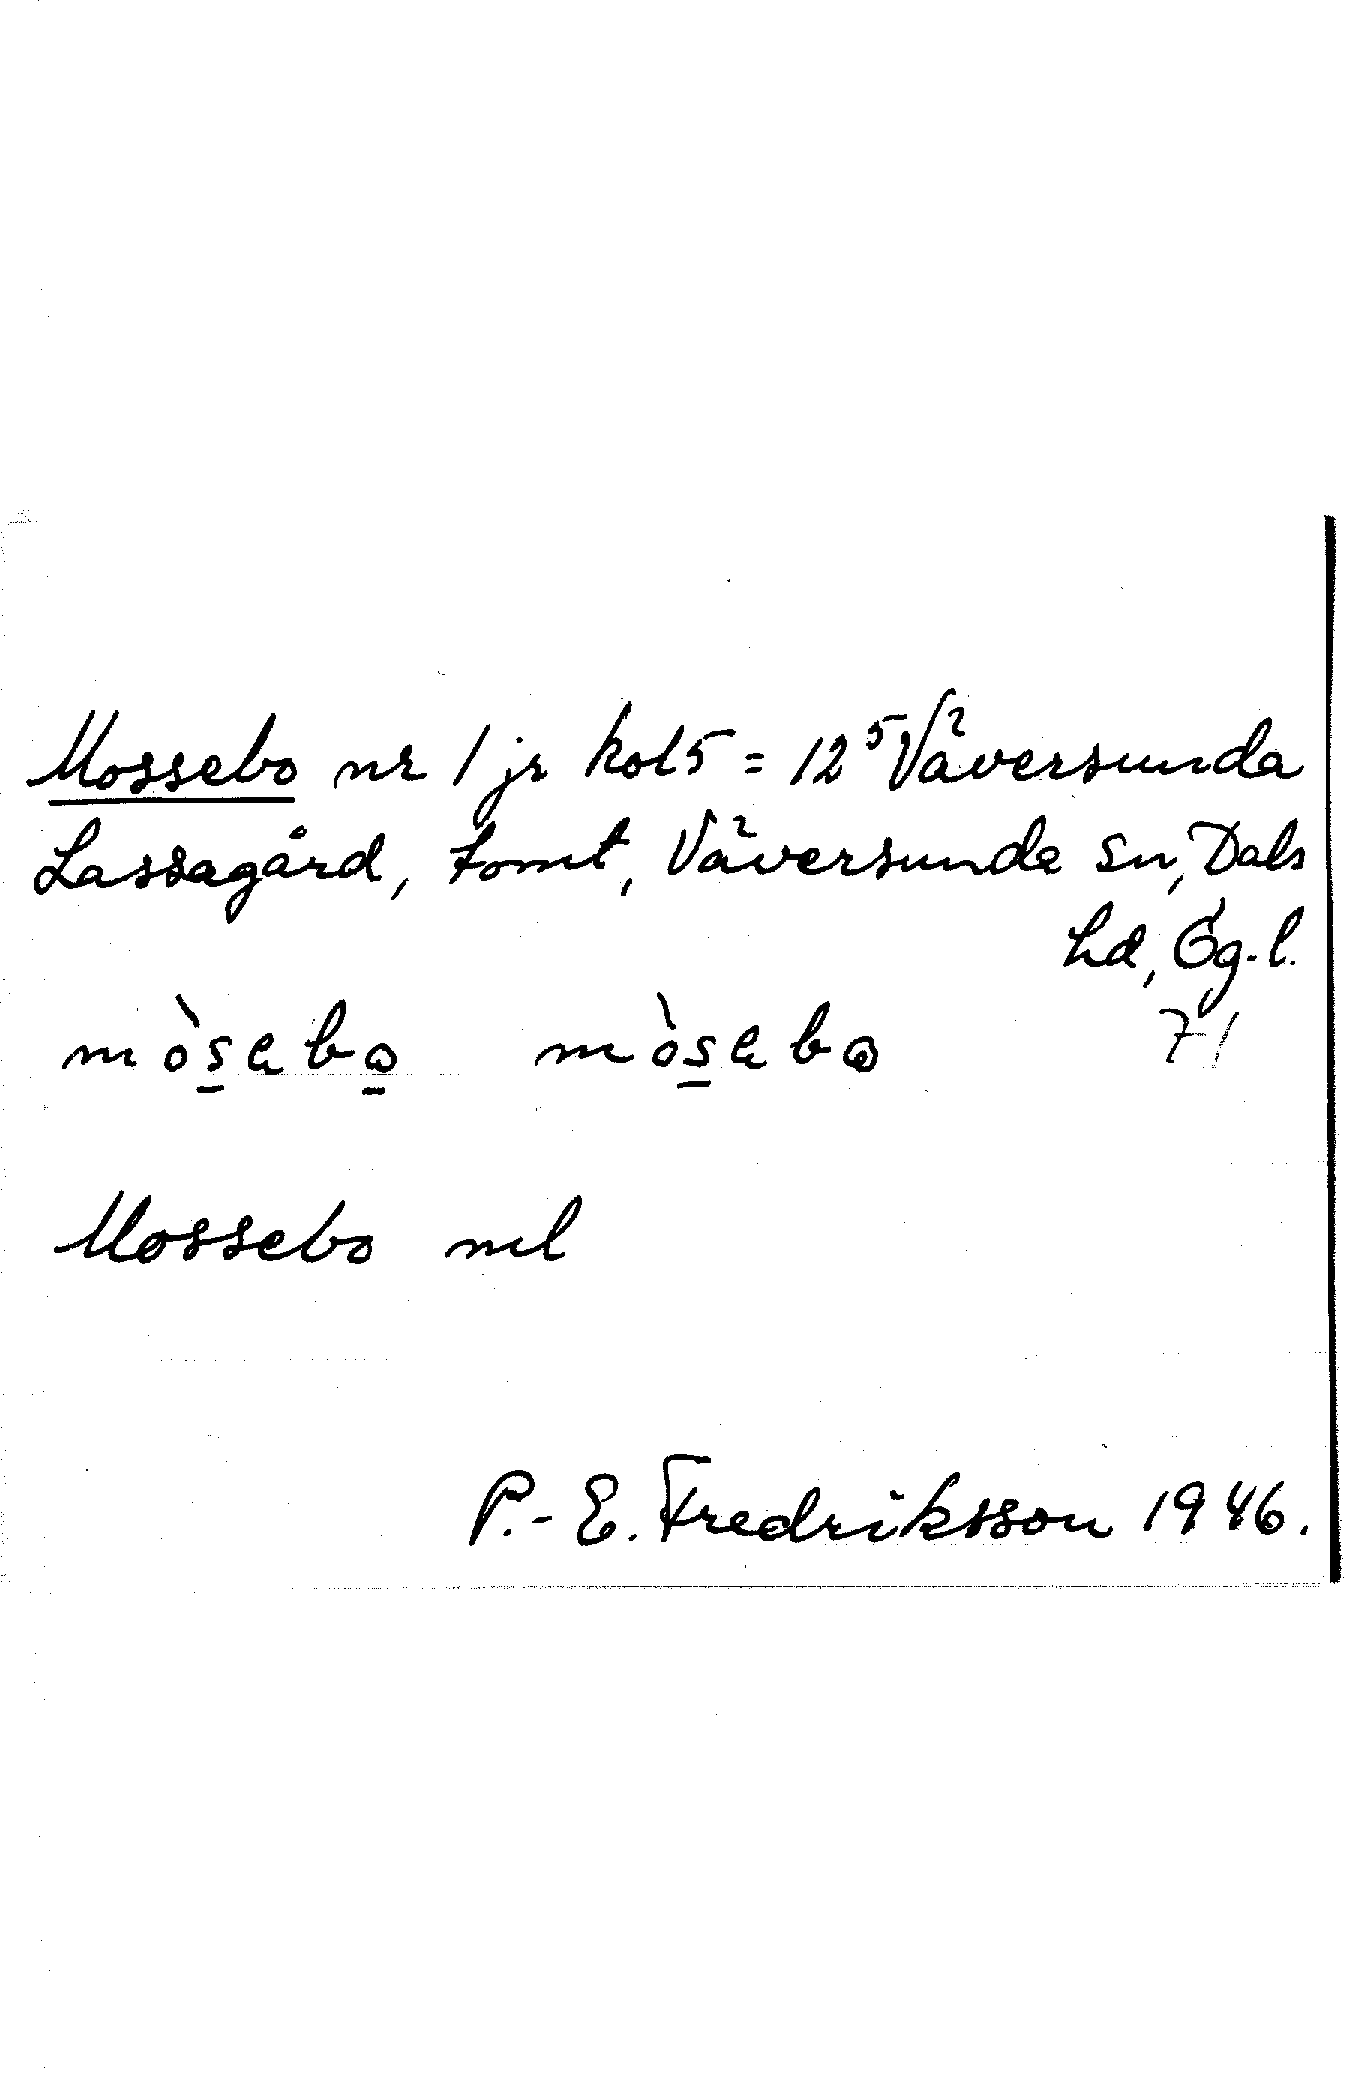 Mossebo nr 1 jr kol 5 = 12⁵ Väversunda
Lassagård, tomt, Väversunda sn, Dals
hd, Ög-l.
mòsebo mòsebo
71
Mossebo ml
P.-E. Fredriksson 1946.